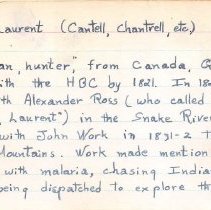 Laurent (Cantell, Chantrell, etc.)
an, hunter," from Canada, G
ith the HBC by 1821. In 18
th Alexander Ross (who called
, Laurent") in the Snake River
with John Work in 1831-2 t
Mountains. Work made mention
with malaria, chasing India
being dispatched to explore th